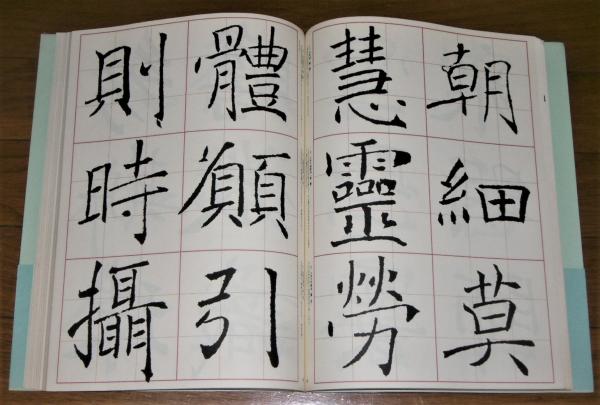 朝細莫
慧靈勞
體引
則時攝